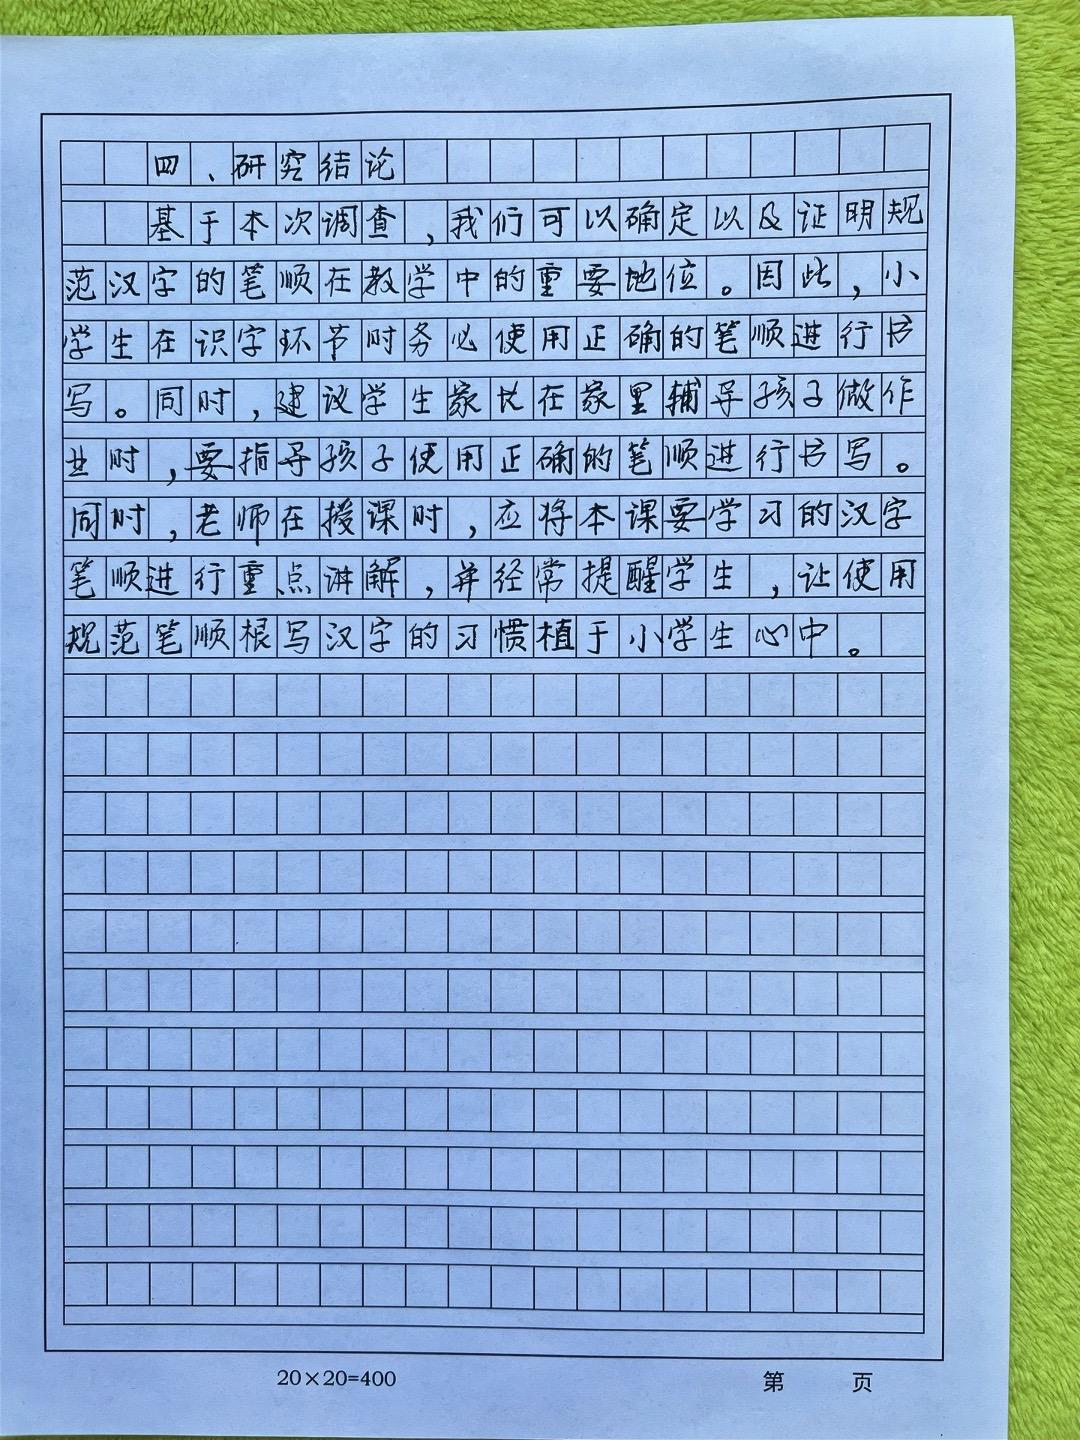 四、研究结论
基于本次调查，我们可以确定以及证明规
范汉字的笔顺在教学中的重要地位。因此，小
学生在识字环节时务必使用正确的笔顺进行书
写。同时，建议学生家长在家里辅导孩子做作
业时，要指导孩子使用正确的笔顺进行书写。
同时，老师在授课时，应将本课要学习的汉字
笔顺进行重点讲解，并经常提醒学生，让使用
规范笔顺根写汉字的习惯植于小学生心中。
20×20=400
第 页